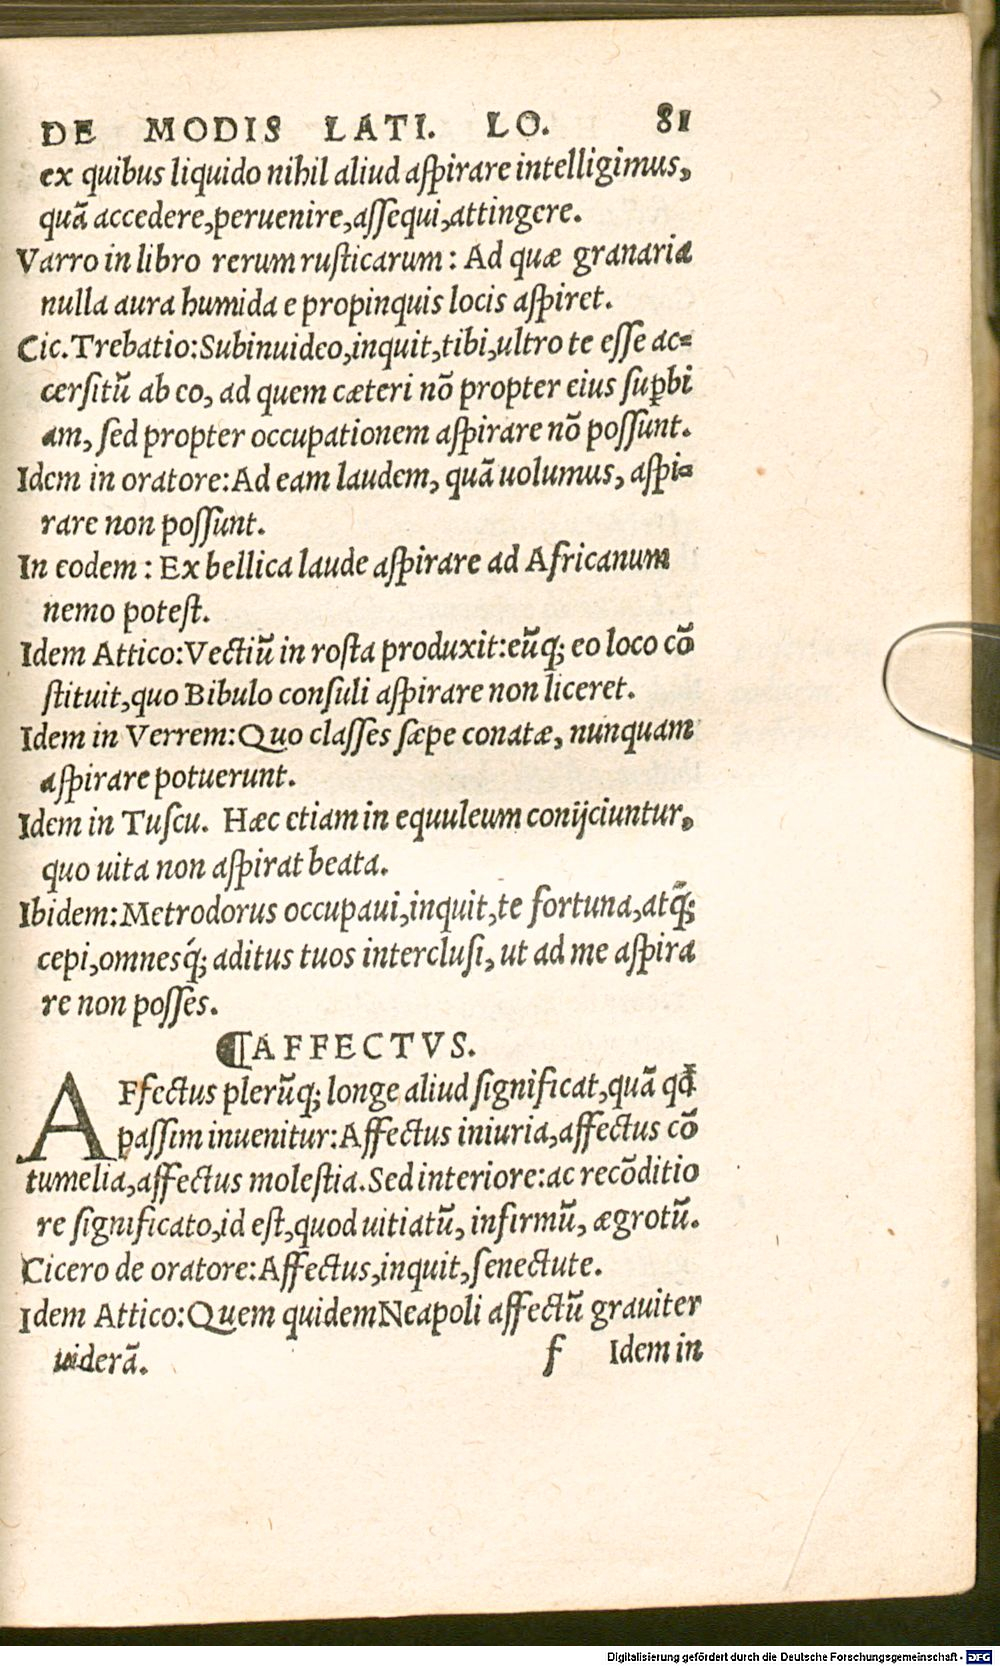 DE MODIS LATI. LO. 81
ex quibus liquido nihil aliud aſpirare intelligimus,
quã accedere,peruenire,aſſequi,attingere.
Varro in libro rerum ruſticarum: Ad quæ granaria
nulla aura humida e propinquis locis aſpiret.
Cic.Trebatio:Subinuideo,inquit,tibi,ultro te eſſe ac-
cerſitũ ab eo, ad quem cæteri nõ propter eius ſuꝑbi
am, ſed propter occupationem aſpirare nõ poſſunt.
Idem in oratore:Ad eam laudem, quã uolumus, aſpi-
rare non poſſunt.
In eodem: Ex bellica laude aſpirare ad Africanum
nemo poteſt.
Idem Attico:Vectiũ in roſta produxit:eũq; eo loco cõ
ſtituit,quo Bibulo conſuli aſpirare non liceret.
Idem in Verrem:Quo claſſes ſæpe conatæ, nunquam
aſpirare potuerunt.
Idem in Tuſcu. Hæc etiam in equuleum conijciuntur,
quo uita non aſpirat beata.
Ibidem:Metrodorus occupaui,inquit,te fortuna,atq́;
cepi,omnesq́; aditus tuos intercluſi, ut ad me aſpira
re non poſſes.
¶AFFECTVS.
AFfectus plerũq; longe aliud ſignificat,quã qđ
paſſim inuenitur:Affectus iniuria,affectus cõ
tumelia,affectus moleſtia.Sed interiore:ac recõditio
re ſignificato,id eſt,quod uitiatũ, infirmũ, ægrotũ.
Cicero de oratore:Affectus,inquit,ſenectute.
Idem Attico:Quem quidem Neapoli affectũ grauiter
uiderã. f Idem in
Digitalisierung gefördert durch die Deutsche Forschungsgemeinschaft - DFG